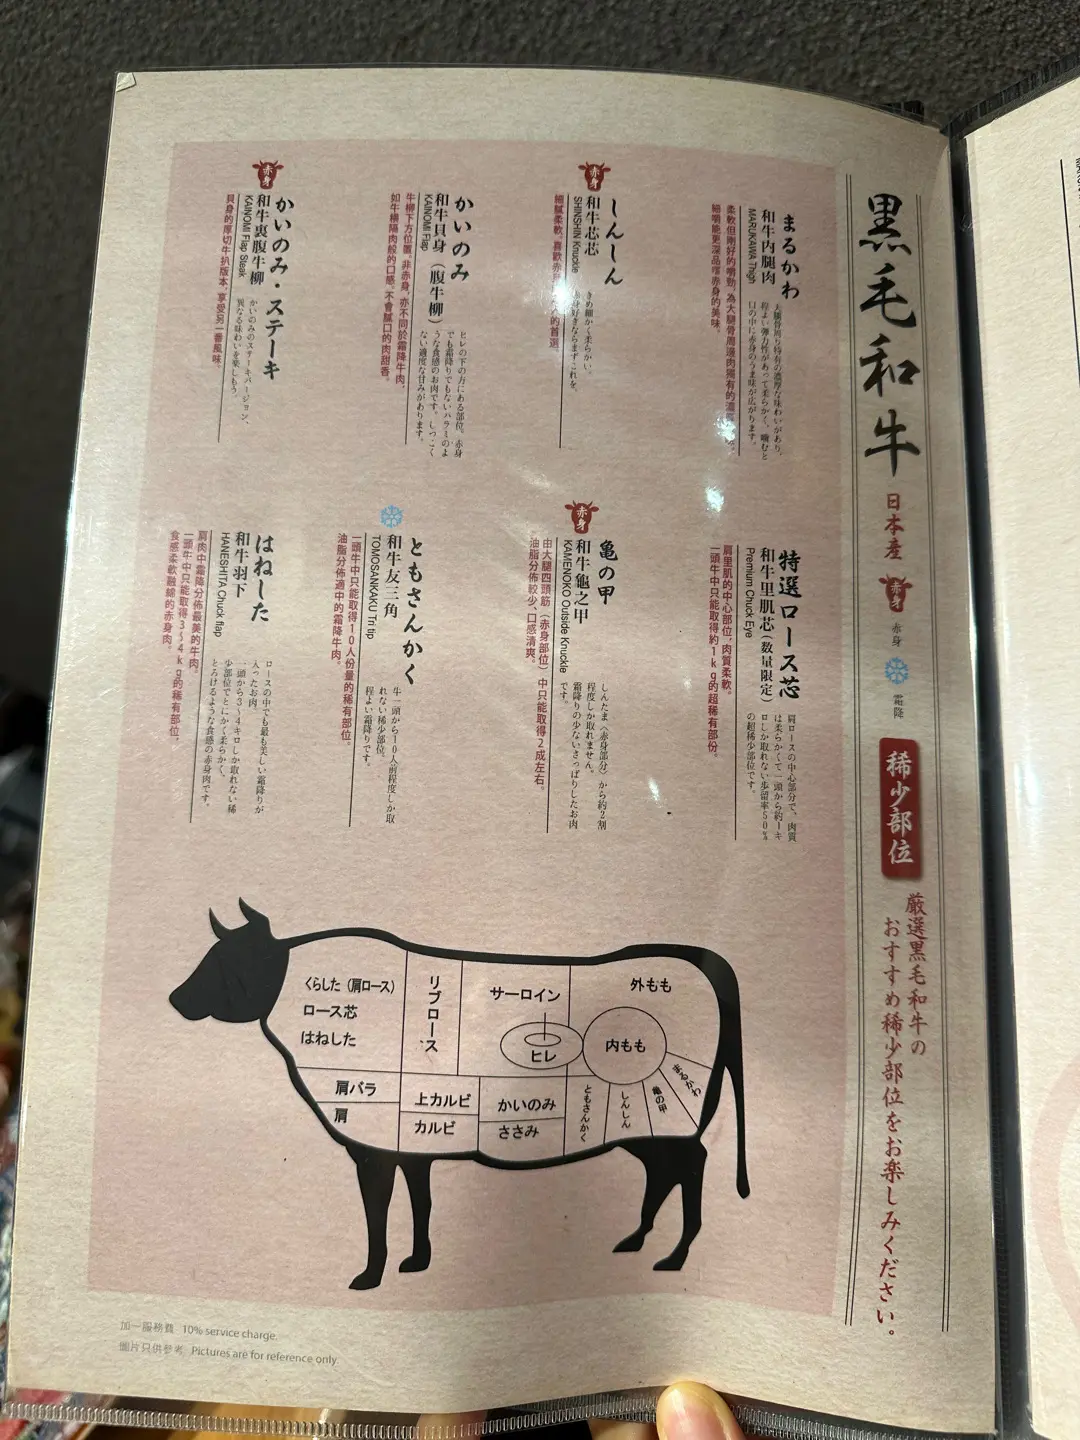 黒毛和牛
日本産
赤身
赤身
霜降
稀少部位
厳選黒毛和牛の
おすすめ稀少部位をお楽しみください。
まるかわ
和牛内腿肉
MARUKAWA Thigh
大腿骨周り特有の濃厚な味わいがあり、
程よい弾力性があって柔らかく、噛むと
口の中に赤身のうま味が広がります。
柔軟但剛好的嚼勁，為大腿骨周邊肉獨有的濃
細嚼能更深品嚐赤身的美味。
赤身
しんしん
和牛芯芯
SHINSHIN Knuckle
きめ細かく柔らかい。
赤身好きならまずこれを。
細膩柔軟。喜歡赤
人的首選
かいのみ
和牛貝身（腹牛柳）
KAINOMI Flap
ヒレの下の方にある部位。赤身
でも霜降りでもないハラミのよ
うな食感のお肉です。しつこく
ない適度な甘みがあります。
牛柳下方位置。非赤身，亦不同於霜降牛肉，
如牛橫隔肉般的口感，不會膩口的肉甜香。
赤身
かいのみ・ステーキ
和牛裏腹牛柳
KAINOMI Flap Steak
かいのみのステーキバージョン、
異なる味わいを楽しもう。
貝身的厚切牛扒版本，享受另一番風味。
特選ロース芯
和牛里肌芯（数量限定）
Premium Chuck Eye
肩ロースの中心部分で、肉質
は柔らかくて一頭から約一キ
ロしか取れない歩留率50%
の超稀少部位です。
肩里肌的中心部位，肉質柔軟。
一頭牛中只能取得約1kg的超稀有部份。
赤身
亀の甲
和牛龜之甲
KAMENOKO Outside Knuckle
しんたま（赤身部分）から約2割
程度しか取れません。
霜降りの少ないさっぱりしたお肉
です。
由大腿四頭筋（赤身部位）中只能取得2成左右。
油脂分佈較少、口感清爽。
ともさんかく
和牛友三角
TOMOSANKAKU Tri tip
牛一頭から10人前程度しか取
れない稀少部位。
程よい霜降りです。
一頭牛中只能取得10人份量的稀有部位。
油脂分佈適中的霜降牛肉。
はねした
和牛羽下
HANESHITA Chuck flap
ロースの中でも最も美しい霜降りが
入ったお肉。
一頭から3〜4キロしか取れない稀
少部位でとにかく柔らかく、
とろけるような食感の赤身肉です。
肩肉中霜降分佈最美的牛肉。
一頭牛中只能取得3〜4kg的稀有部位，
食感柔軟融綿的赤身肉。
くらした（肩ロース）
ロース芯
はねした
リブロース
サーロイン
ヒレ
外もも
内もも
肩バラ
肩
上カルビ
カルビ
かいのみ
ささみ
ともさんかく
しんしん
亀の甲
まるかわ
加一服務費 10% service charge.
圖片只供參考 Pictures are for reference only.